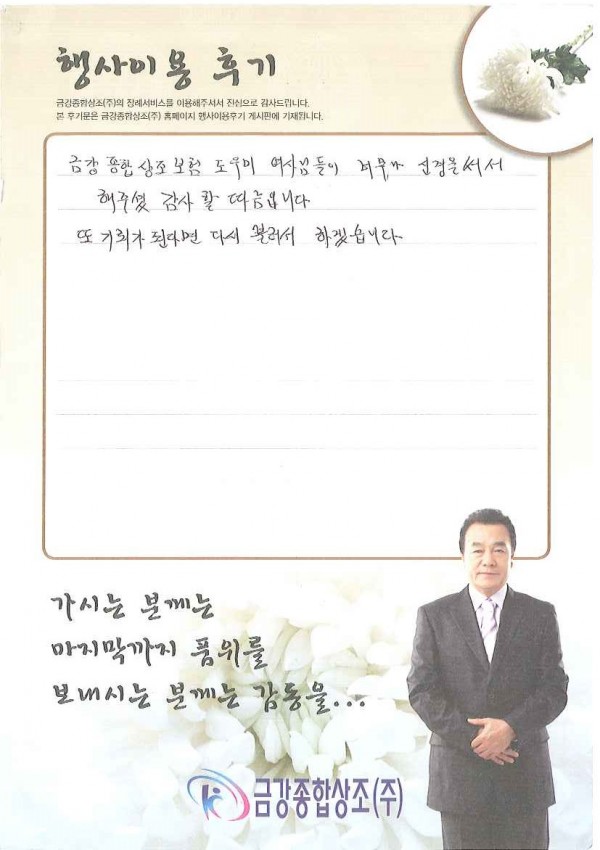 행사이용 후기
금강종합상조(주)의 장례서비스를 이용해주셔서 진심으로 감사드립니다.
본 후기문은 금강종합상조(주) 홈페이지 행사이용후기 게시판에 기재됩니다.
금강 종합 상조 보험 도우미 여사님들이 너무나 신경을써서
해주셨 감사 할 따름입니다
또 기회가 된다면 다시 불러서 하겠습니다
가시는 분께는
마지막까지 품위를
보내시는 분께는 감동을...
금강종합상조(주)